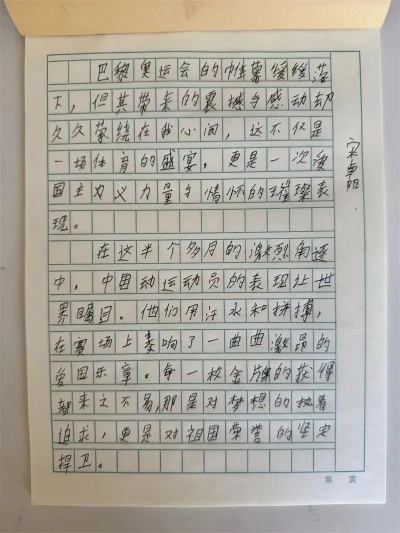 巴黎奥运会的帷幕缓缓落
下,但其带来的震撼与感动却
久久萦绕在我心间,这不仅是
一场体育的盛宴,更是一次爱
国主义力量与情怀的璀璨表
现。
在这半个多月的激烈角逐
中,中国动运动员的表现让世
界瞩目。他们用汗水和拼搏,
在赛场上奏响了一曲曲激昂的
爱国乐章。每一枚金牌的获得
都来之不易,那是对梦想的执着
追求,更是对祖国荣誉的坚定
捍卫。
第 页